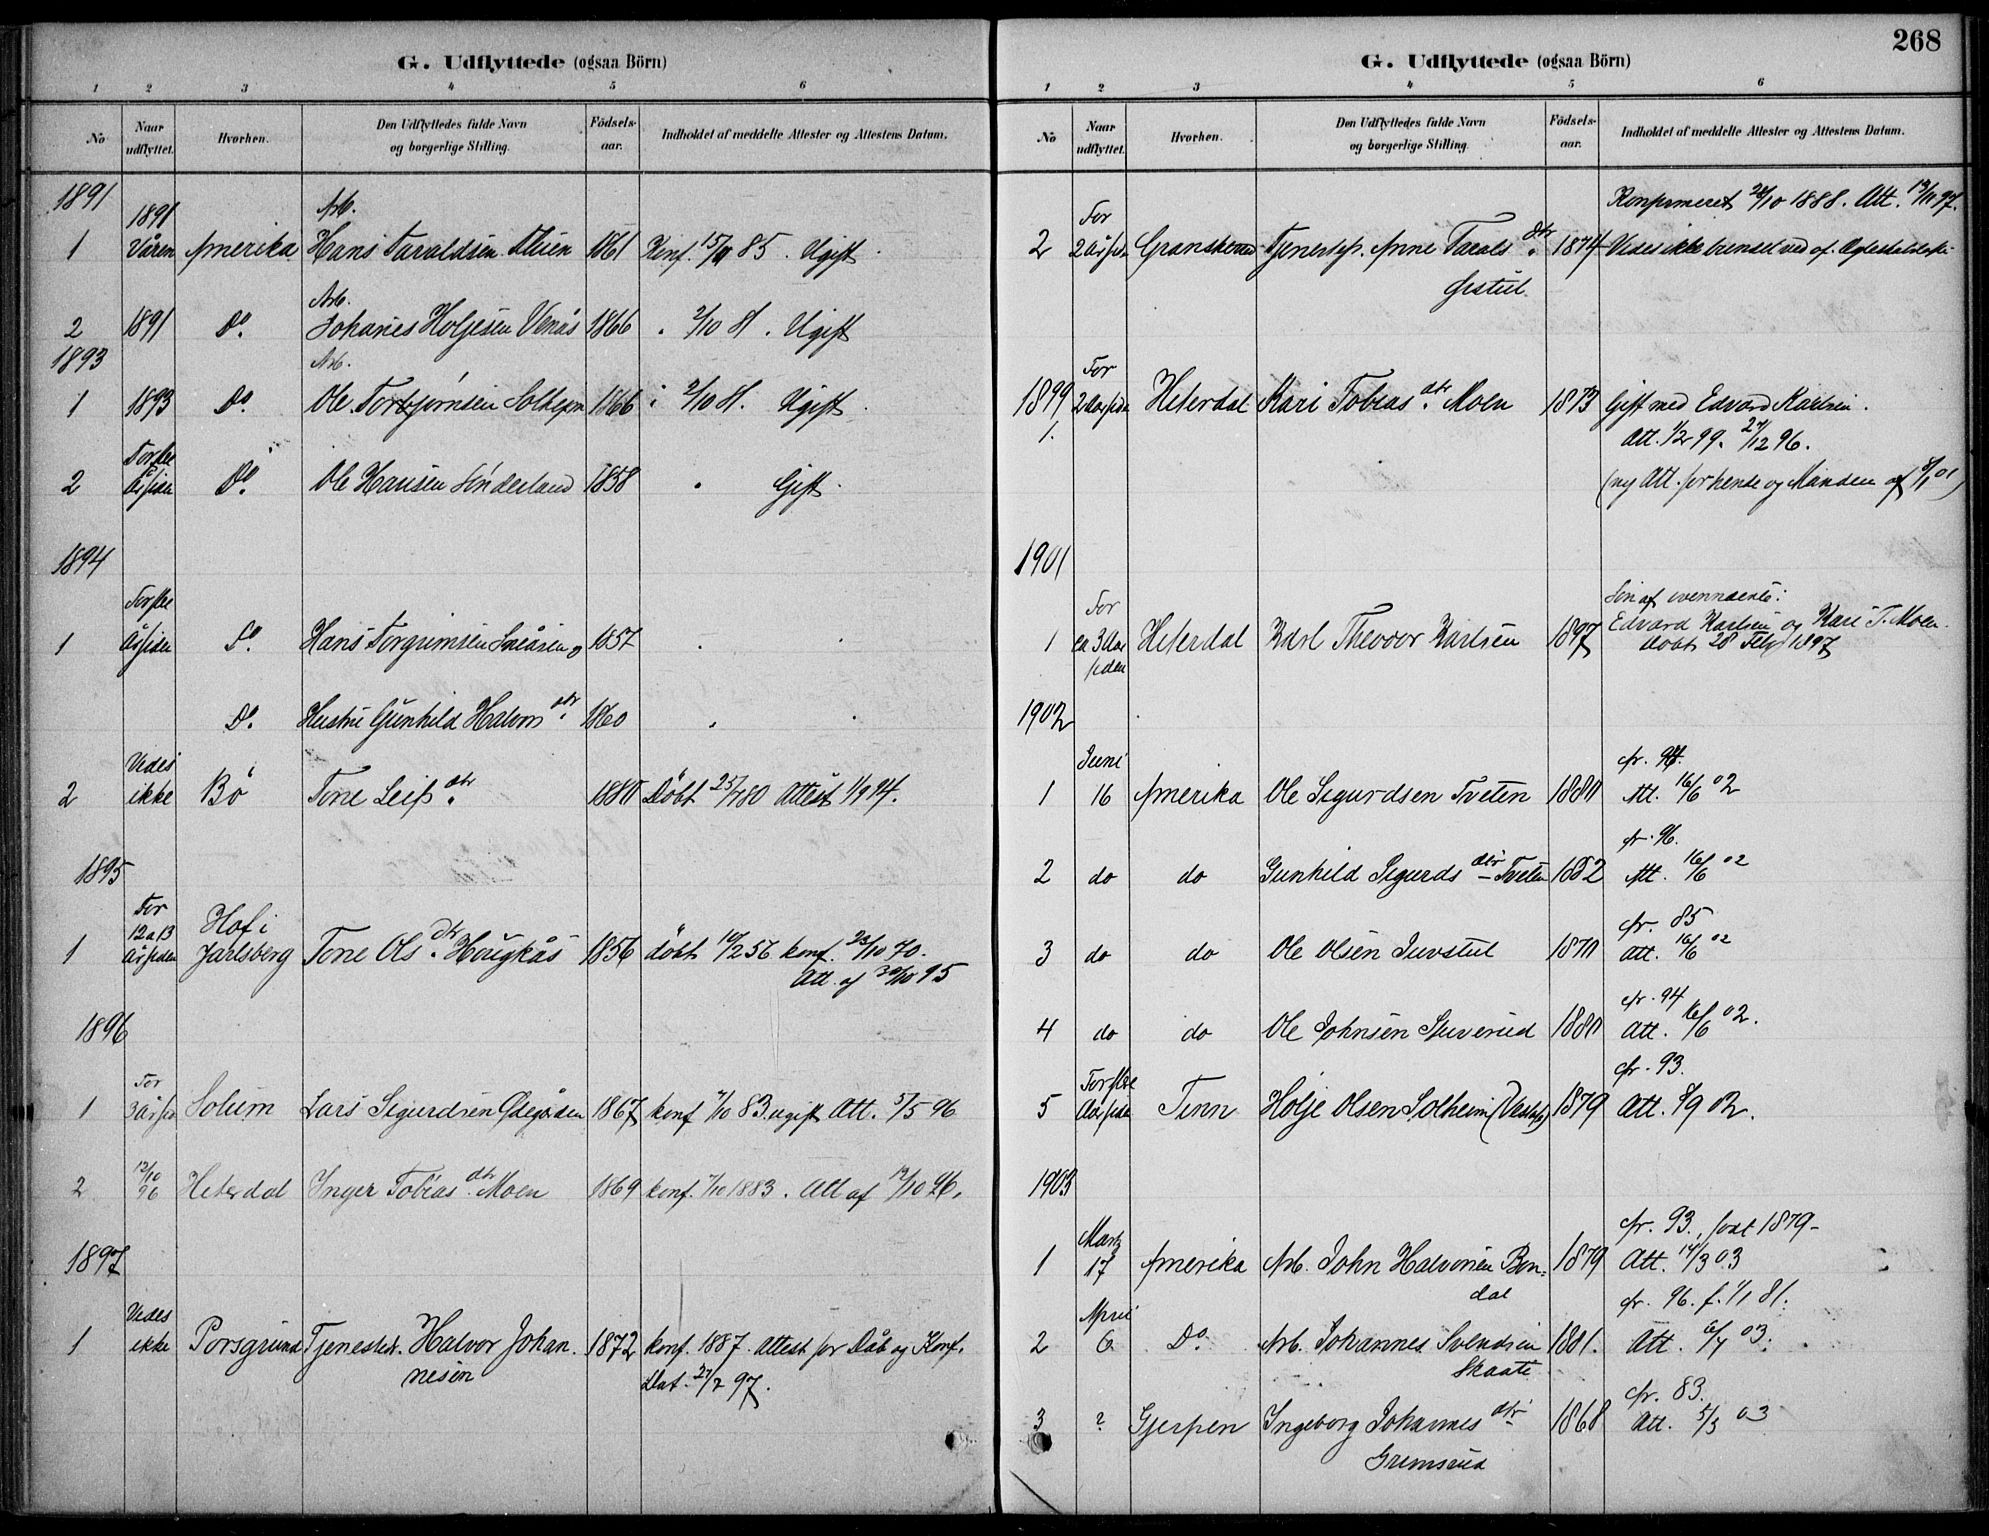 G. Udflyttede (ogsaa Börn)
1 2 3 4 5 6
No Naar udflyttet. Hvorhen. Den Udflyttedes fulde Navn og borgerlige Stilling. Födsels-aar. Indholdet af meddelte Attester og Attestens Datum.
1891
1891 Arb.
1 Våren Amerika Hans Taraldsen 1861 Konf. 85. Ugift
Arb.
2 1891 Do. Johannes Holjesen Venås 1866 " 2/10 81. Ugift
1893
Arb.
1 1893 Do. Ole Torbjørnsen 1866 " 2/10 81. Ugift
2 Årsiden Do. Ole Hansen Sønderland 1858 " Gift.
1894
1 Årsiden Do. Hans Torgrimsen 1857 "
Do. Hustru Gunhild Halvors dtr. 1860 "
Vides
2 ikke Bö Tone Leifs dtr. 1880 Döbt 25/7 80 Attest 1/9 94.
1895
For
12 a 13 Hof i
1 Årsiden Jarlsberg Tone Ols dtr. Hougkås 1856 döbt 10/2 57 konf. 23/10 70.
Att. af 30/10 95
1896
For
1 3 År sid Solum Lars Sigurdsen Ødegården 1867 konf 7/10 83. ugift Att. 5/5 96
12/10
2 96 Heterdal Inger Tobias dtr. Moen 1869 konf. 7/10 1883. Att af 12/10 96.
1897
Vides
1 ikke Porsgrund Tjenestedr. Halvor Johan- 1872 konf. 1887. Attest for Dåb og Konf.
nesen Dat. 27/7 97.
268
G. Udflyttede (ogsaa Börn)
1 2 3 4 5 6
No Naar udflyttet. Hvorhen. Den Udflyttedes fulde Navn og borgerlige Stilling. Födsels-aar. Indholdet af meddelte Attester og Attestens Datum.
Konfirmeret 28/10 1888. Att. 13/11 97.
For
2 2 År siden Anne dtr. 1874 Vides ikke
Gestul
For
1899 2 Aar siden Heterdal Kari Tobias dtr. Moen 1873 Gift med Edvard Karlsen.
1. Att. 1/2 99. 27/12 96.
(ny Att. for hende og Manden af 8/1 01)
1901
Sön af ovennævnte:
For Edvard Karlsen og Kari T. Moen.
1 ca 3 Aar Heterdal Karl Theodor Karlsen 1897 döbt 28 Feb 1897
siden
1902
Juni cfr. 94.
1 16 Amerika Ole Sigurdsen Tveten 1880 Att. 16/6 02
cfr. 96.
2 do do Gunhild Sigurds dtr Tveten 1882 Att. 16/6 02
cfr. 85
3 do do Ole Olsen Juvstul 1870 Att. 16/6 02
cfr. 94
4 do do Ole Johnsen Stuverud 1880 Att. 16/6 02.
cfr. 93.
5 Aar siden Tinn Holje Olsen Solheim 1879 Att. 02.
1903
cfr. 93., födt 1879-
Marts
1 17 Amerika Arb. John Halvorsen Bon- 1879 Att. 17/3 03
dal
April cfr. 96. f. 1/1 81.
2 6 Do. Arb. Johannes Svendsen 1881. Att. 6/4 03.
Skaate
cfr. 83.
3 ? Gjerpen Ingeborg Johannes dtr 1868 Att. 5/5 03
Gremsrud